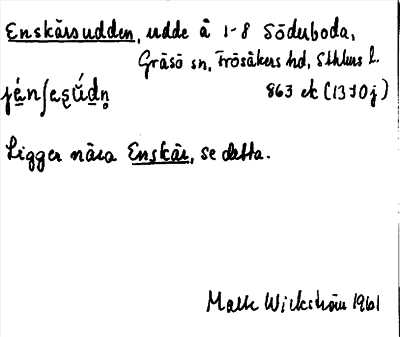 Enskärsudden, udde å 1-8 Söderboda,
Gräsö sn, Frösåkers hd, Sthlms l.
863 ek (1370j)
Ligger nära Enskär, se detta.
Wickström 1961